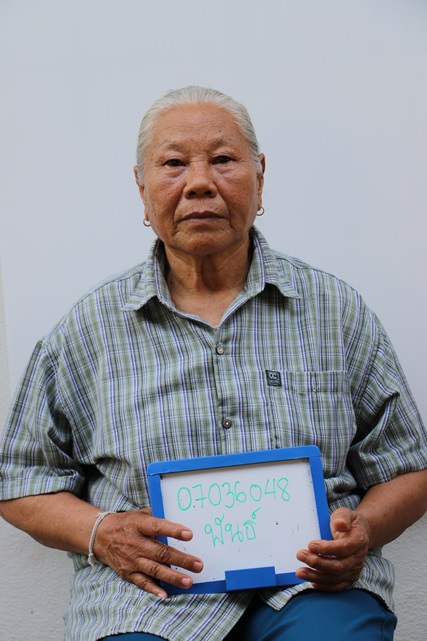 0.7036048
พันธ์